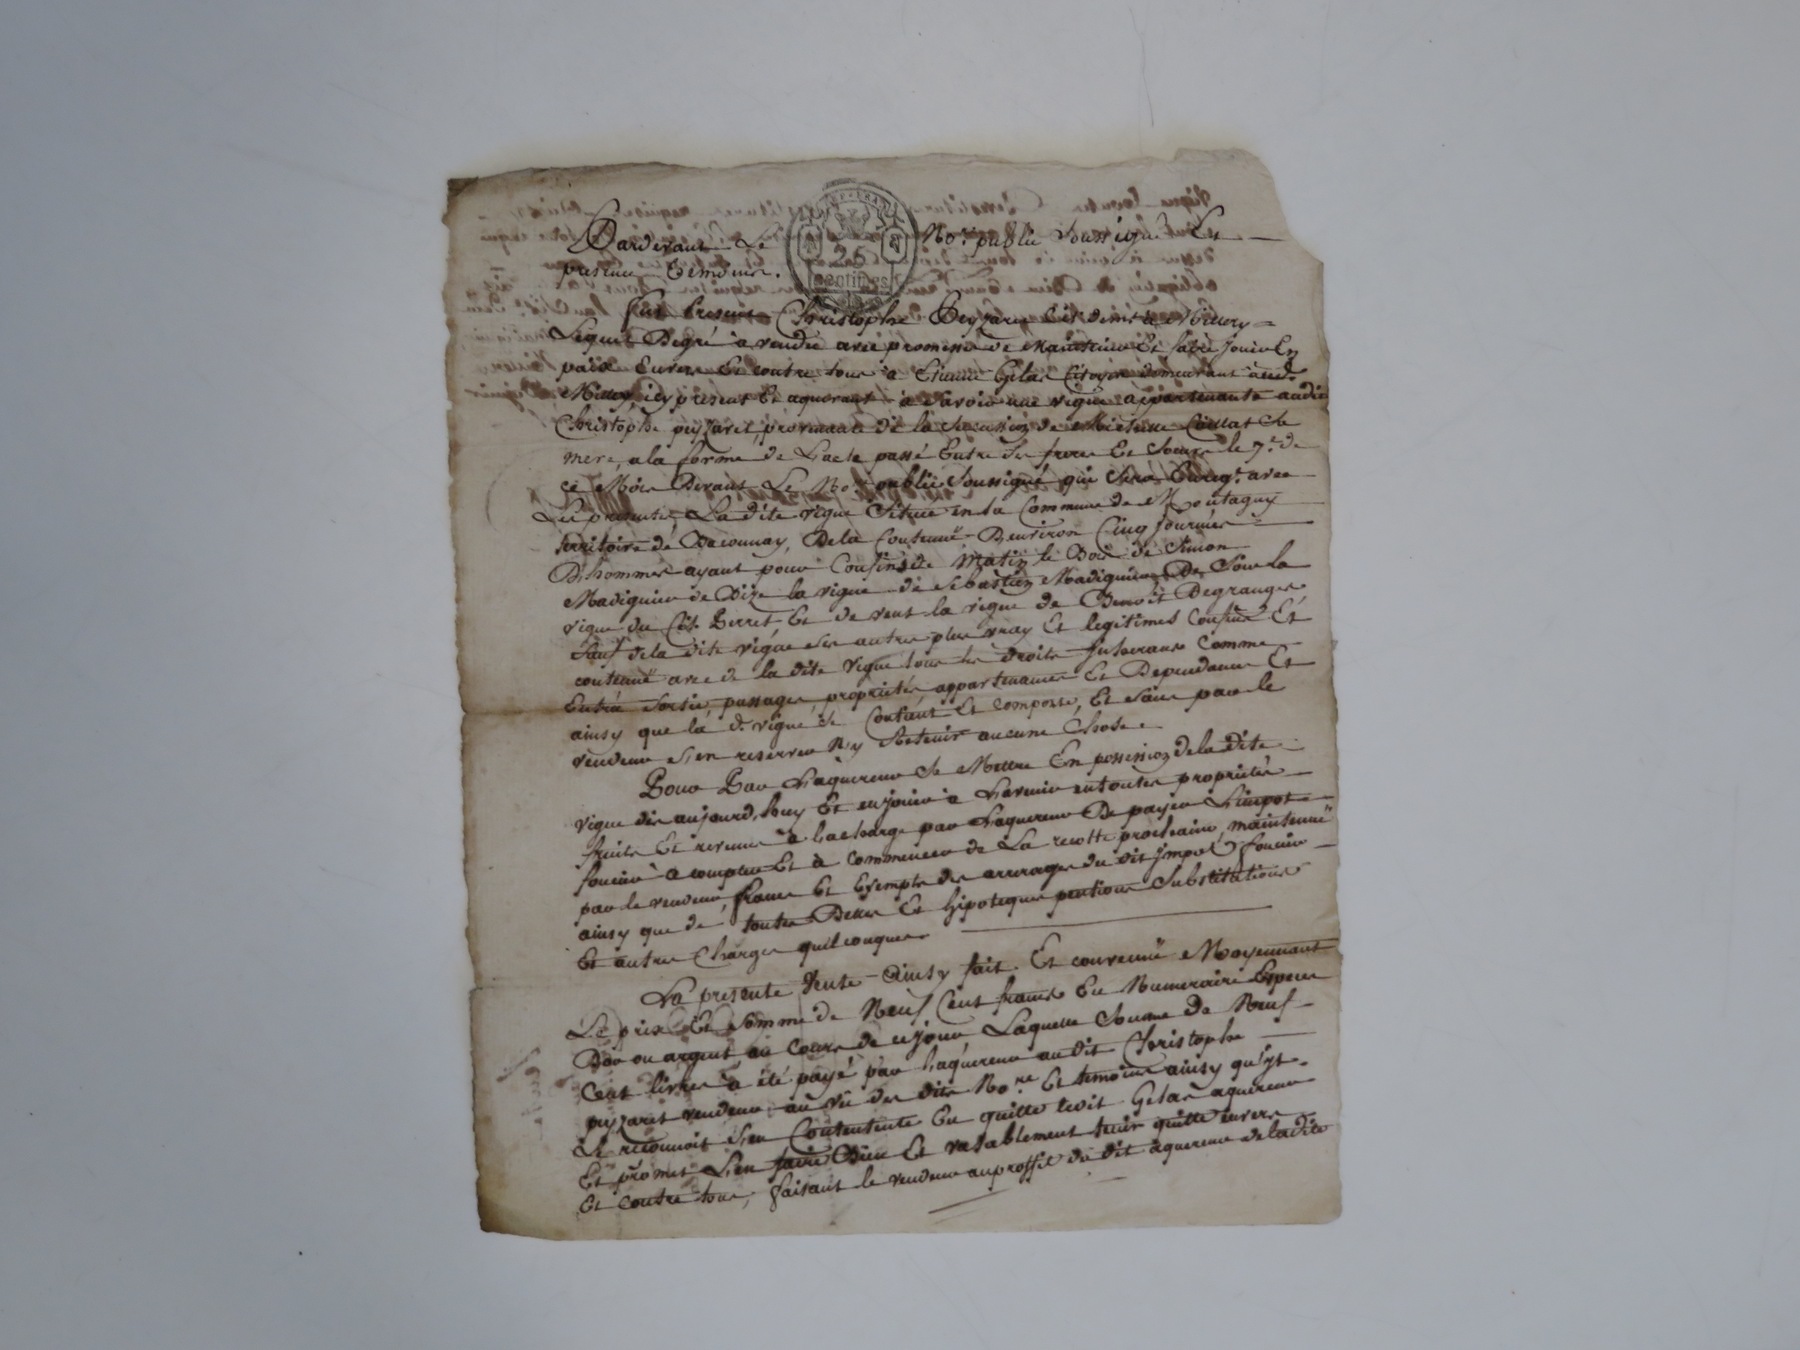 Pardevant Le Nore public Soussigné Et
presence temoins.
25
centimes
Fut Present Christophe Peyzaret Cit. demt a Millery
Lequel Degré à vendu avec promesse de Maintenir Et faire jouir En
paix Envers Et contre tous à Etienne Gelas Citoyen demeurant aud.
Millery, icy present Et aquerant, à Savoir une vigne appartenante audit
Christophe peyzaret, provenante de la Succession de Micheline Caillat Sa
mere, a la forme de Lacte passé Entre Ses freres Et Soeurs le 7e de
ce Mois Devant Le Nore public Soussigné qui Sera Enregt. avec
Les presentes, La dite vigne Situee en la Commune de Montagny
territoire de Baconnay, De la Contenue Denviron Cinq journées
D'hommes ayant pour Confins de Matin le Bois de Simon
Madiguier de Bize la vigne de Sebastien Madiguier De Soir la
vigne du Cit. Perret Et de vent la vigne de Benoit Degranges,
Sauf de la dite vigne Ses autres plus vray Et legitimes Confins Et
contenue avec de la dite vigne tous les droits
Entrée Sortie, passages, proprietés, appartenances Et Dependances Et
ainsy que la d. vigne Se Contient Et Comporte, Et Sans par le
vendeur S'en reserver N'y Retenir aucune Chose.
Pour Par L'aquereur Se Mettre En possession de la dite
vigne dès aujourd'huy Et en jouir à L'avenir en toutes proprietés
fruits Et revenus à la charge par L'aquereur De payer L'impot
foncier à compter Et à commencer de La recolte prochaine, maintenue
par le vendeur, franche Et Exempte des arrerages du dit jmpot foncier
ainsy que de toutes Dettes Et hipoteques pentions Substitutions
Et autres Charges quelconques.
La presente Vente ainsy fait Et convenue Moyennant
Le prix Et Somme de Neuf Cent francs En Numeraire Especes
Dor ou argent au Cours de ce jour, Laquelle Somme de Neuf
Cent livres à été payé par L'aquereur au dit Christophe
peyzaret vendeur au vû des dits Nore Et temoins ainsy qu'il
Le reconnoit S'en Contente En quitte ledit Gelas aquereur
Et promet L'en faire Bien Et valablement tenir quitte envers
Et contre tous, faisant le vendeur au proffit du dit aquereur de la dite